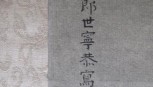 郎世寧恭寫